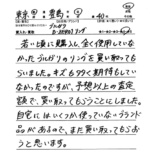 東京 豊島
40
買入れ・買取 ブルガリ B-zero1リング
若い頃に購入し全く使用してい
なかったブルガリのリングを買い取っても
らいました。キズもタタく期待もしてい
なかったのですが、予想以上の査定
額で、買い取ってもらうことにしました。
自宅にはいくつか使っていないブランド
品があるので、また買い取ってもらおう
と思います。